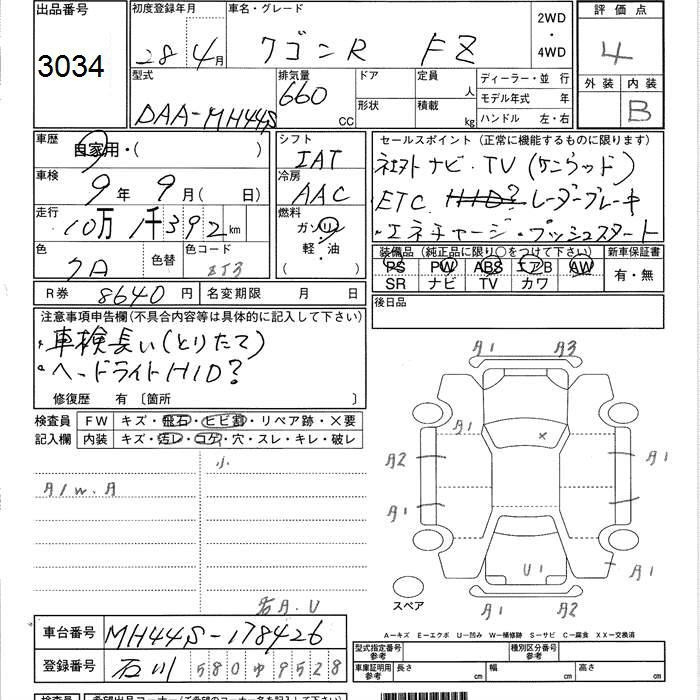 出品番号
3034
初度登録年月
28年4月
車名・グレード
ワゴンR FZ
2WD
・
4WD
評価点
4
外装 内装
B
型式
DAA-MH44S
排気量
660 CC
ドア
形状
定員 人
積載 kg
ディーラー・並行
モデル年式 年
ハンドル 左・右
車歴
自家用・( )
シフト
IAT
車検
9年 9月( 日)
冷房
AAC
走行
10万1千392km
燃料
ガソリン
軽・油
( )
色
クロ
色替
色コード
ZJ3
R券 8640円
名変期限 月 日
セールスポイント(正常に機能するものに限ります)
社外ナビ・TV(ケンウッド)
・ETC HID? レーダーブレーキ
・エネチャージ・プッシュスタート
装備品(純正品に限り○をつけて下さい)
PS PW ABS エアB AW
SR ナビ TV カワ
新車保証書
有・無
後日品
注意事項申告欄(不具合内容等は具体的に記入して下さい)
・車検長い(とりたて)
・ヘッドライトHID?
修復歴 有 〔箇所 〕
検査員
記入欄
FW キズ・飛石・ヒビ割・リペア跡・×要
内装 キズ・汚レ・コゲ・穴・スレ・キレ・破レ
小
A1 W.A
右A.U
A1 A3
A1 ×
A2 A1
A1 A1
U1
A1 A2
スペア
A-キズ E-エクボ U-凹み W-補修跡 S-サビ C-腐食 XX-交換済
車台番号 MH44S-178426
登録番号 石川 580ゆ9528
型式指定番号
参考
種別区分番号
参考
車庫証明用
参考
長さ cm 幅 cm 高さ cm